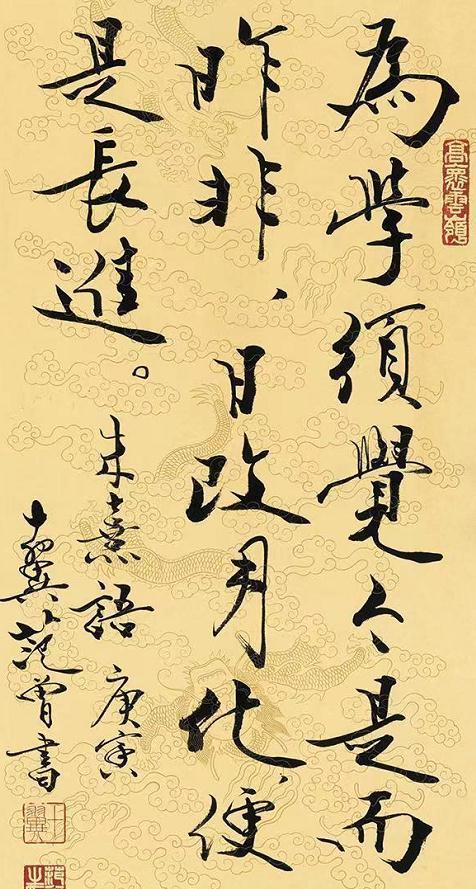 為學須覺今是而
昨非、日改月化、便
是長進。
朱熹語 庚寅
十翼范曾書